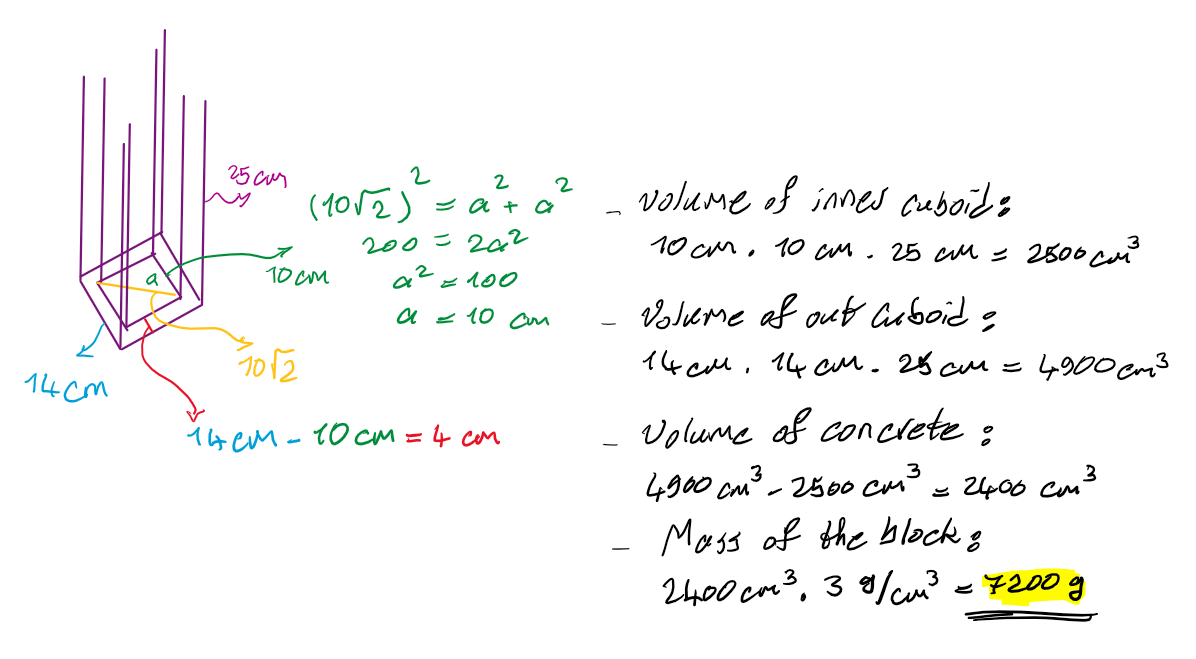 25cm
a
10cm
10√2
14cm
14cm - 10cm = 4 cm
(10√2)² = a² + a²
200 = 2a²
a² = 100
a = 10 cm
- Volume of inner cuboid:
10cm . 10 cm . 25 cm = 2500 cm³
- Volume of out cuboid:
14cm . 14cm . 25 cm = 4900cm³
- Volume of concrete:
4900 cm³ - 2500 cm³ = 2400 cm³
- Mass of the block:
2400cm³ . 3 g/cm³ = 7200 g